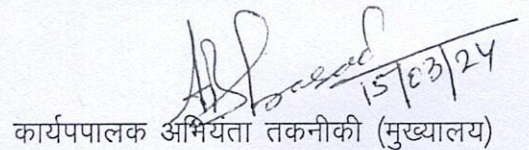 15/03/24
कार्यपपालक अभियंता तकनीकी (मुख्यालय)